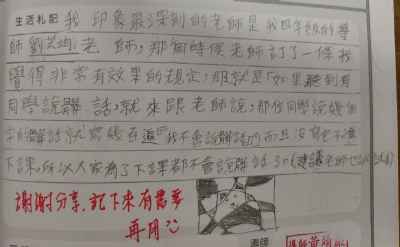 生活札記 我印象最深刻的老師是我四年級的導
師劉 老師,那個時候老師訂了一條我
覺得非常有效果的規定,那就是「如果聽到有
同學說髒話,就來跟老師說,那位同學說幾個
字的髒話就寫幾百遍『我不會說髒話』而且沒寫完不準
下課」所以大家為了下課都不會說髒話了。(建議老師也試試看)
謝謝分享,記下來有需要
再用